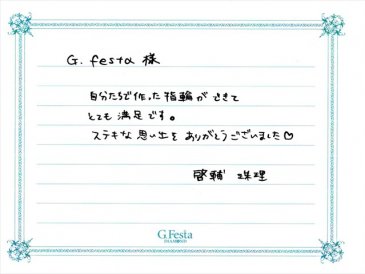 G. festa 様
自分たちで作った指輪ができて
とても満足です。
ステキな思い出をありがとうございました♡
啓輔 珠理
G.Festa
DIAMOND